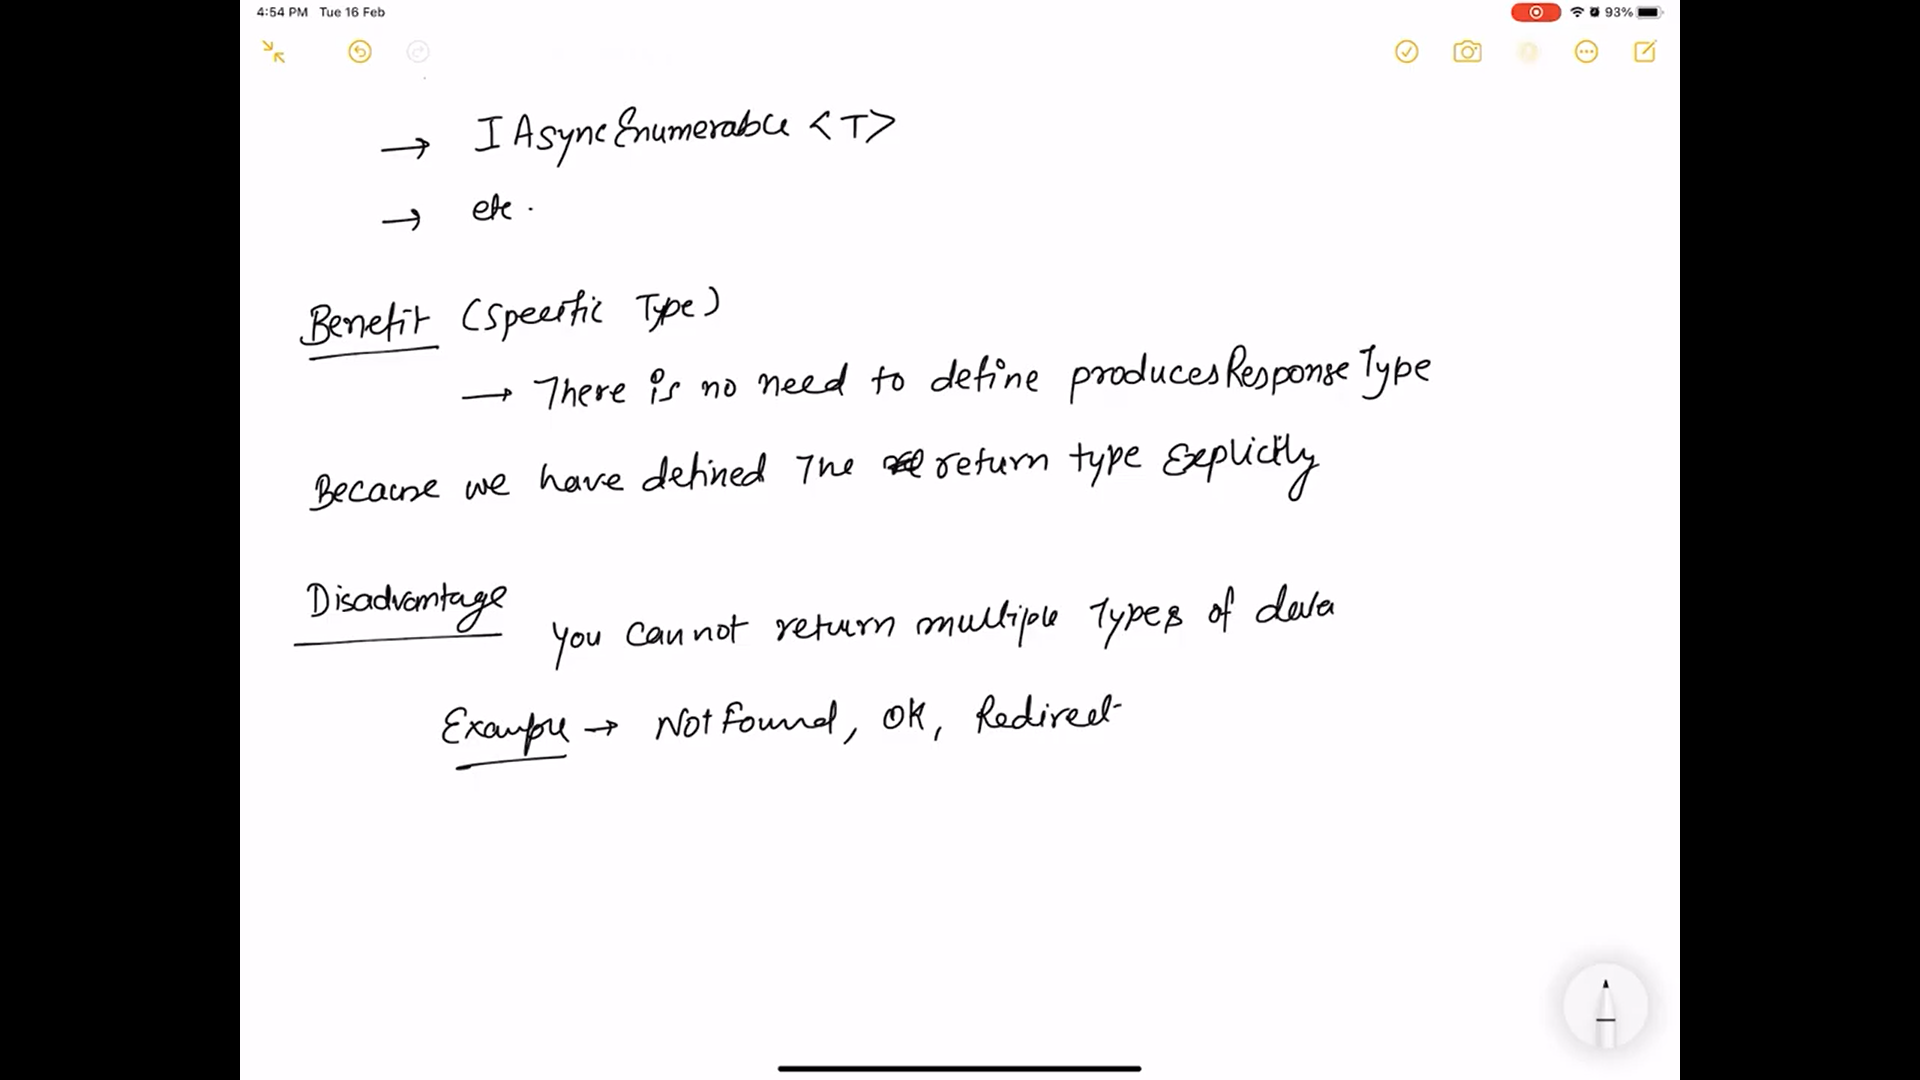 4:54 PM Tue 16 Feb
93%
→ IAsyncEnumerable <T>
→ etc.
Benefit (Specific Type)
→ There is no need to define producesResponseType
Because we have defined The return type Explicitly
Disadvantage
you cannot return multiple Types of data
Example → NotFound, OK, Redirect